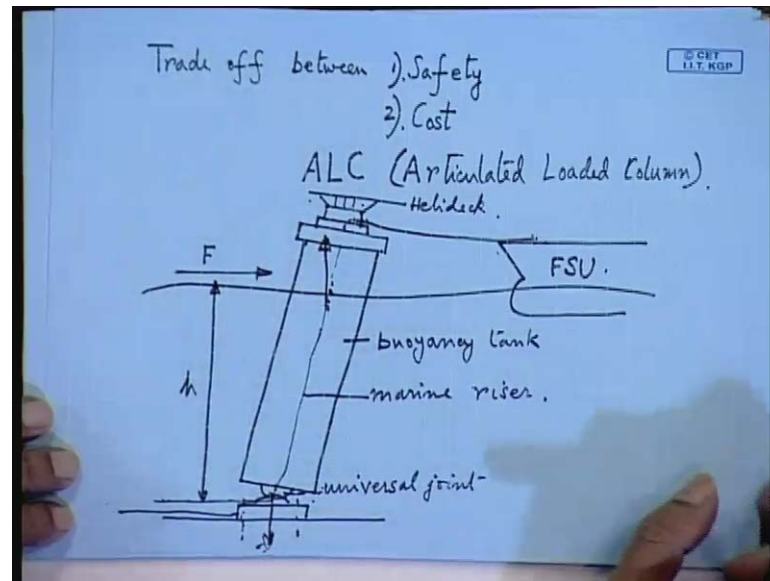 Trade off between 1). Safety
2). Cost
© CET
I.I.T. KGP
ALC (Articulated Loaded Column).
Helideck.
F
FSU.
h
buoyancy tank
marine riser.
universal joint